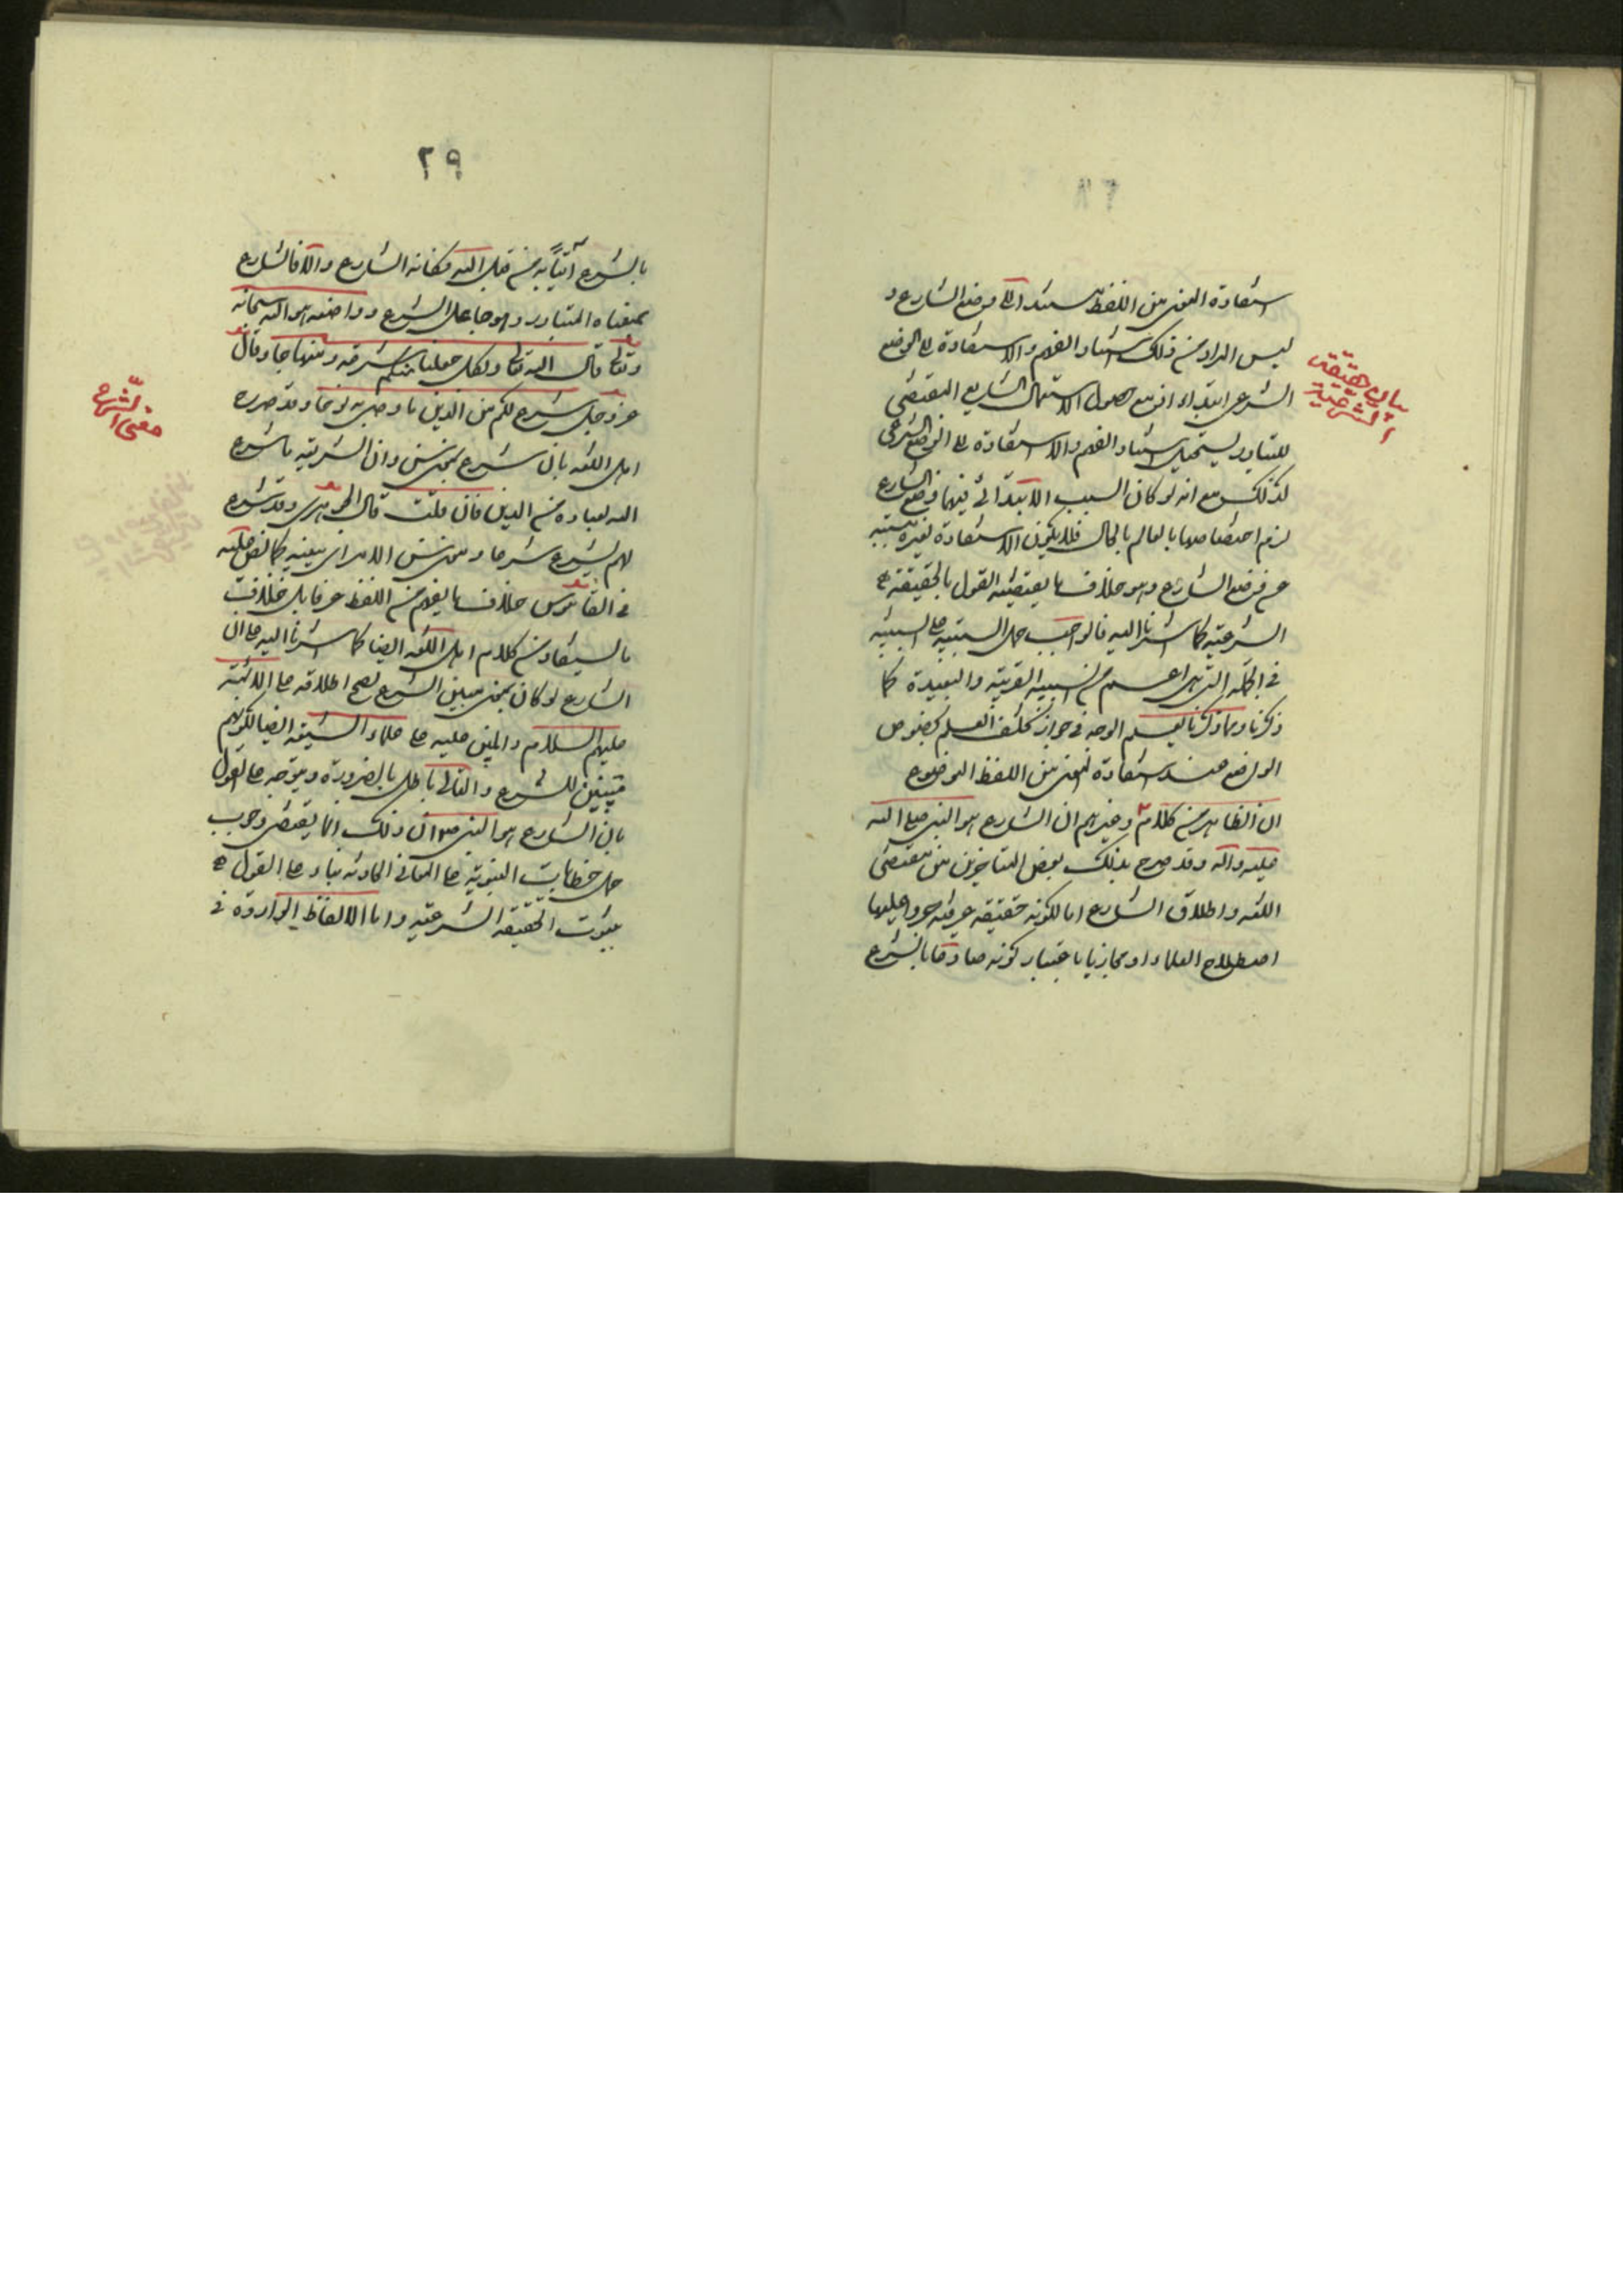 ٢٨
استفادة المعنى من اللفظ مستندا الى وضع الشارع و
ليس المراد من ذلك استناد الفهم والاستفادة الى الوضع
الشرعي ابتداء اذ مع حصول الاستعمال الشايع المقتضي
للتبادر يستحيل استناد الفهم والاستفادة الى الوضع الشرعي
كذلك مع انه لو كان السبب الابتدائي فيهما وضع الشارع
لزم اختصاصها بالعالم بالحال فلا يكون الاستفادة لغيره مسببة
عن وضع الشارع وهو خلاف ما يقتضيه القول بالحقيقة
الشرعية كما اشرنا اليه فالواجب حمل السببية على السببية
في الجملة التي هي اعم من السببية القريبة والبعيدة كما
ذكرنا ومما ذكرنا يعلم الوجه في جواز تخلف العلم بخصوص
الواضع عند استفادة المعنى من اللفظ الموضوع
ان الظاهر من كلام وغيرهم ان الشارع هو النبي صلى الله
عليه وآله وقد صرح بذلك بعض المتاخرين من مقتضى
اللغة واطلاق الشارع اما لكونه حقيقة عرفية جروا عليها
اصطلاح العلماء او مجازيا باعتبار كونه صادقا بالشرع
بيان حقيقة
الشرعية
٢٩
بالشرع آتيا به من قبل الله فكانه الشارع والا فالشارع
بمعناه المتبادر وهو جاعل الشرع وواضعه هو الله سبحانه
وتعالى قال الله تعالى ولكل جعلنا منكم شرعة ومنهاجا وقال
عز وجل شرع لكم من الدين ما وصى به نوحا وقد صرح
اهل اللغة بان شرع بمعنى سن وان الشريعة ما شرع
الله لعباده من الدين فان قلت قال الجوهري وقد شرع
لهم يشرع شرعا ومعنى سن الامر اي بينه كما نص عليه
في القاموس خلاف ما يفهم من اللفظ عرفا بل خلاف
ما يستفاد من كلام اهل اللغة ايضا كما اشرنا اليه على ان
الشارع لو كان بمعنى مبين الشرع لصح اطلاقه على الائمة
عليهم السلام والمبني عليه على علماء الشيعة ايضا لكونهم
مبينين للشرع والتالي باطل بالضرورة ويتوجه على القول
بان الشارع هو النبي ص ان ذلك انما يقتضي وجوب
حمل خطابات النبوية على المعاني الحادثة بناء على القول
بثبوت الحقيقة الشرعية واما الالفاظ الواردة في
معنى الشرع